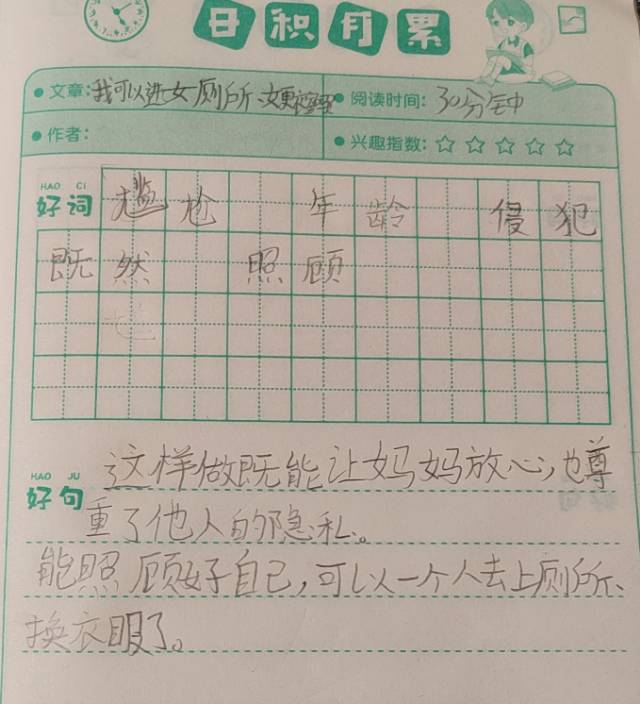 日积月累
文章:我可以进女厕所、女更衣室 阅读时间:30分钟
作者: 兴趣指数:☆☆☆☆☆
HAO CI
好词 尴尬 年龄 侵犯
既然 照顾
HAO JU
好句 这样做既能让妈妈放心,也尊
重了他人的隐私。
能照顾好自己,可以一个人去上厕所、
换衣服了。